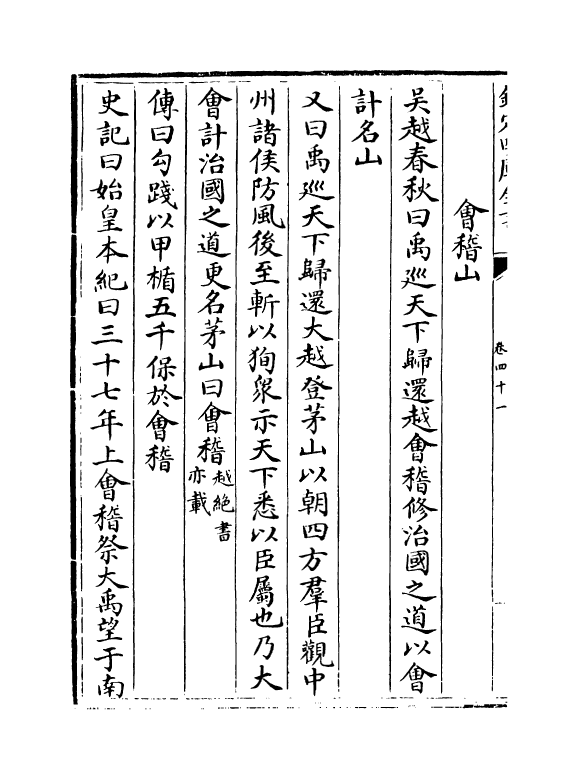 卷四十一
會稽山
吳越春秋曰禹廵天下歸還越會稽修治國之道以會
計名山
又曰禹廵天下歸還大越登茅山以朝四方羣臣觀中
州諸侯防風後至斬以狥衆示天下悉以臣屬也乃大
會計治國之道更名茅山曰會稽越絶書亦載
傳曰勾踐以甲楯五千保於會稽
史記曰始皇本紀曰三十七年上會稽祭大禹望于南